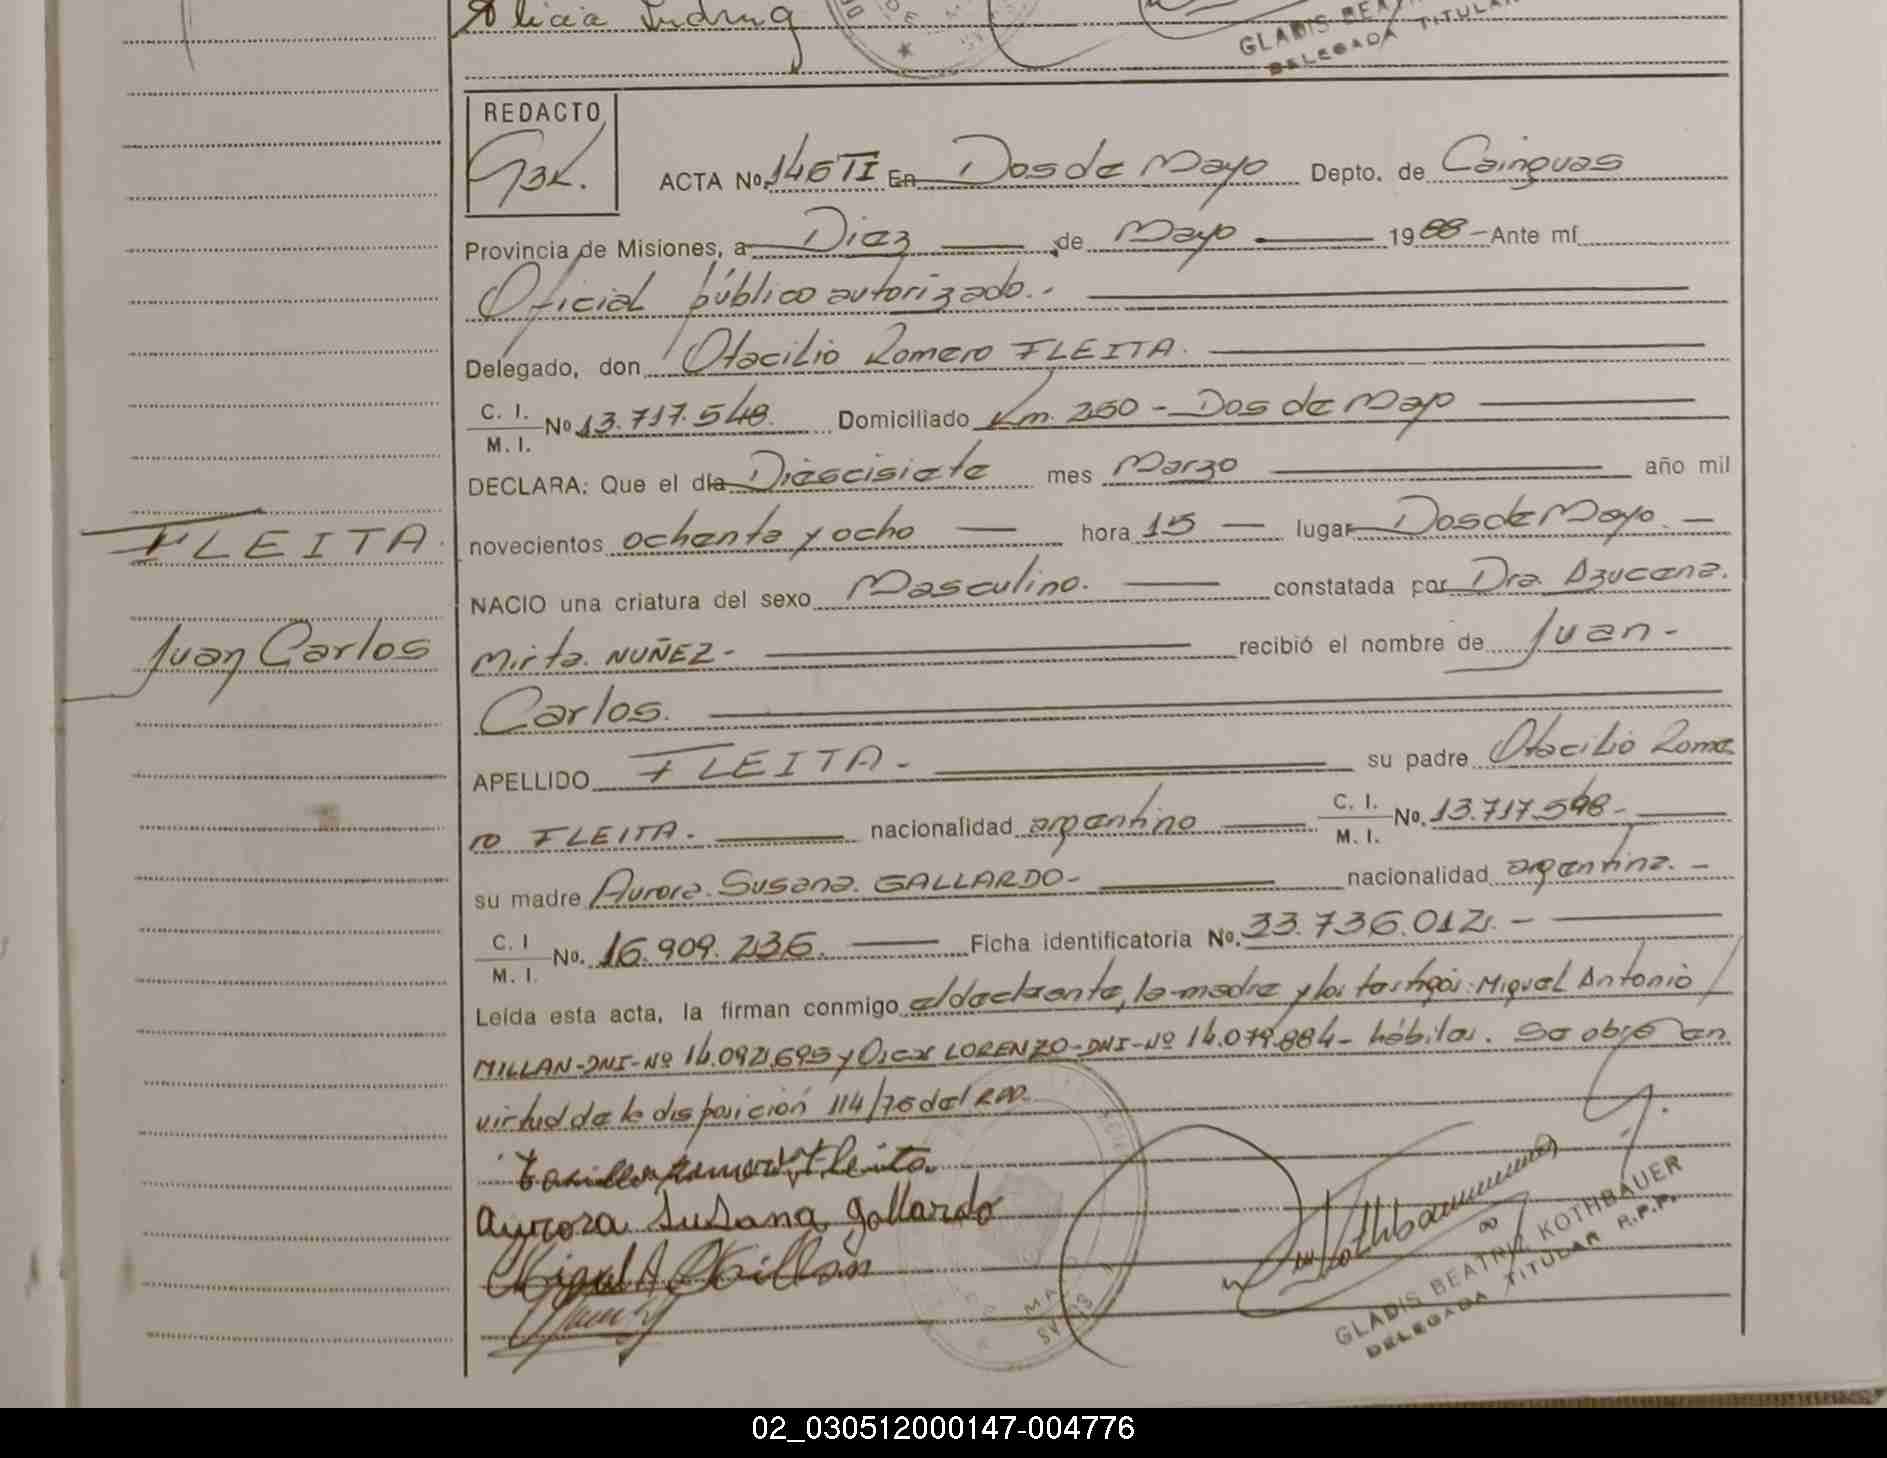 Alicia
GLADIS BEA
DELEGADA TITULAR
REDACTO
GBK.
ACTA No. 146 TI En Dos de Mayo Depto. de Cainguas
Provincia de Misiones, a Diez de Mayo 1988 - Ante mí
Oficial público autorizado.-
Delegado, don Otacilio Romero FLEITA.
C. I.
M. I. No 13.717.548. Domiciliado Km. 250 - Dos de Mayo
DECLARA: Que el día Diescisiete mes Marzo año mil
novecientos ochenta y ocho hora 15 lugar Dos de Mayo. -
FLEITA.
NACIO una criatura del sexo Masculino. constatada por Dra. Azucena.
Juan Carlos
Mirta. NUÑEZ - recibió el nombre de Juan -
Carlos.
APELLIDO FLEITA. - su padre Otacilio Rome
ro FLEITA. nacionalidad argentino C. I.
M. I. No. 13.717.548 -
su madre Aurora. Susana. GALLARDO - nacionalidad argentina. -
C. I
M. I. No. 16.909.236. Ficha identificatoria No. 33.736.012. -
Leída esta acta, la firman conmigo el declarante, la madre y los testigos: Miguel Antonio
MILLAN - DNI - Nº 14.092.695 y Oscar LORENZO - DNI - Nº 14.079.884 - hábiles. Se obró en
virtud de la disposición 114/76 del RPP.
Fleita.
Aurora Susana gallardo
Miguel A Millan
GLADIS BEATRIZ KOTHBAUER
DELEGADA TITULAR R.P.P.
02_030512000147-004776